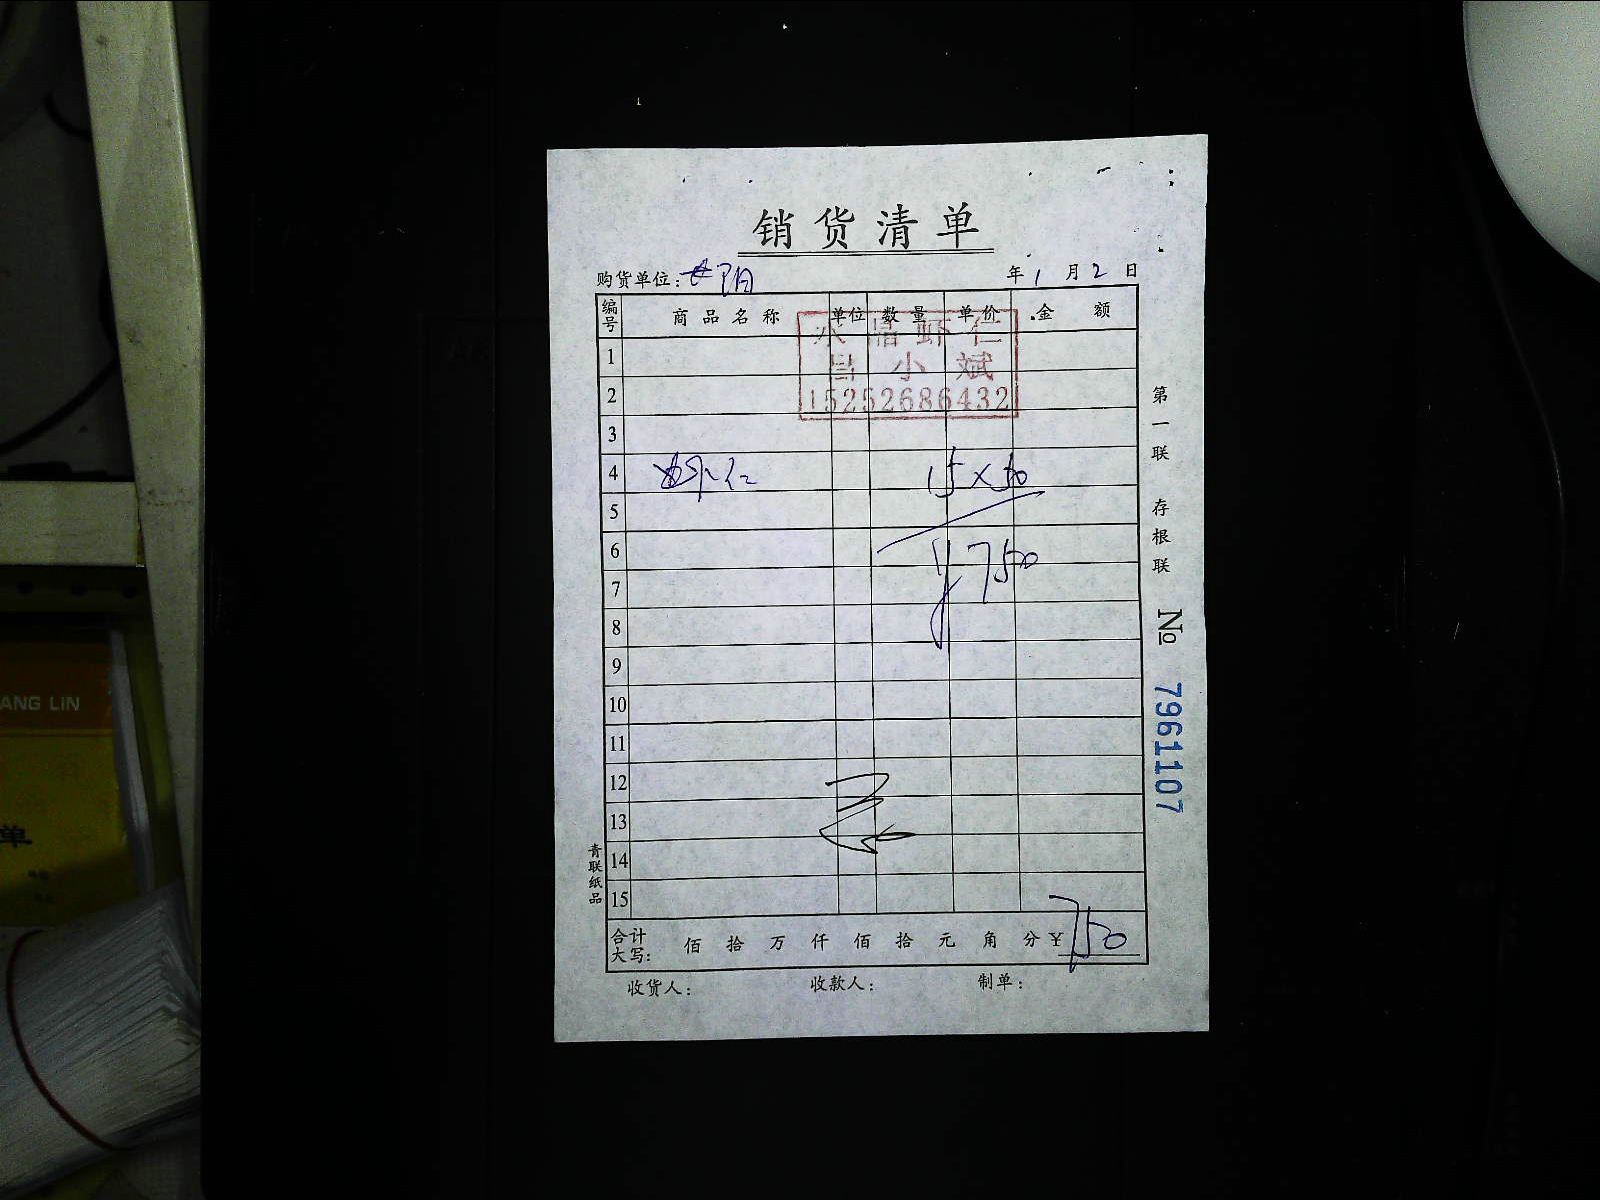 销货清单
购货单位: 年1月2日
编号 商品名称 单位 数量 单价 金额
水晶虾仁
吕小斌
15252686432
1
2
3
4 虾仁 15×50
5
6 ¥750
7
8
9
10
11
12
13
14
15
合计大写: 佰 拾 万 仟 佰 拾 元 角 分 ¥750
收货人: 收款人: 制单:
第一联 存根联 № 7961107
青联纸品
ANG LIN
单